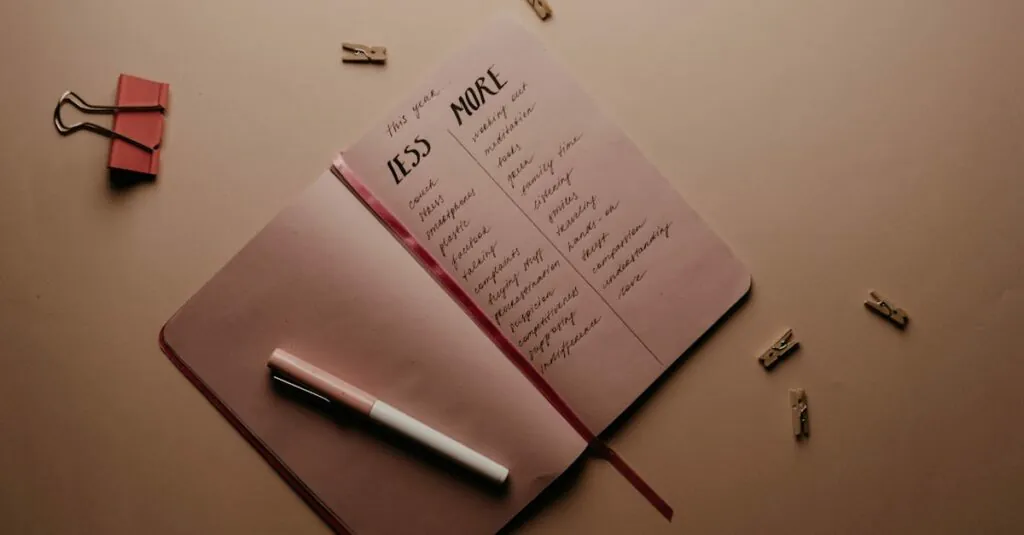 this year...
LESS
couch
stress
smartphones
plastic
facebook
talking
complaints
buying stuff
procrastination
suspicion
competitiveness
supposing
indifference
MORE
working out
meditation
books
green
family time
listening
smiles
traveling
hands-on
trust
compassion
understanding
love